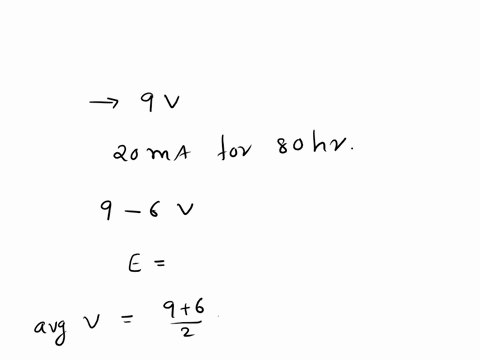 → 9 V
20 mA for 80 hr.
9 – 6 V
E =
avg V = 9+6/2